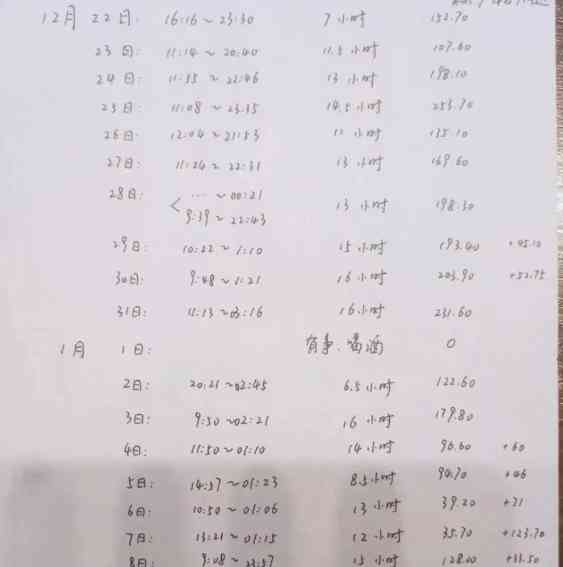 12月 22日: 16:16~23:30 7小时 152.70
23日: 11:14~20:40 11.5小时 107.60
24日: 11:35~22:46 13小时 198.10
25日: 11:08~23:35 14.5小时 253.70
26日: 12:04~21:53 11小时 135.10
27日: 11:24~22:31 13小时 169.60
28日: < ...~00:21
9:39~22:43 13小时 198.30
29日: 10:22~1:10 15小时 193.40 +45.10
30日: 9:48~1:21 16小时 203.90 +52.75
31日: 11:13~03:16 16小时 231.60
1月 1日: 有事. 0
2日: 20:21~02:45 6.5小时 122.60
3日: 9:50~02:21 16小时 179.80
4日: 11:50~01:10 14小时 96.60 +60
5日: 14:57~01:23 8.5小时 94.70 +46
6日: 10:50~01:06 13小时 39.20 +31
7日: 13:21~01:15 12小时 35.70 +123.70
8日: 9:08~23:57 15小时 128.00 +31.50